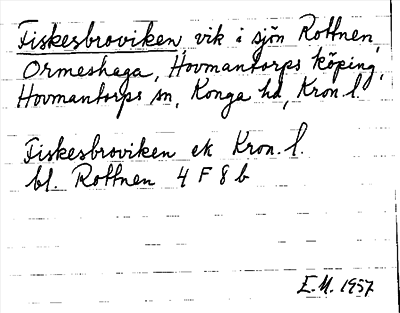 Fiskesbroviken, vik i sjön Rottnen,
Ormeshaga, Hovmantorps köping,
Hovmantorps sn, Konga hd, Kron. l.
Fiskesbroviken ek Kron. l.
bl. Rottnen 4 F 8 b
E.M. 1957